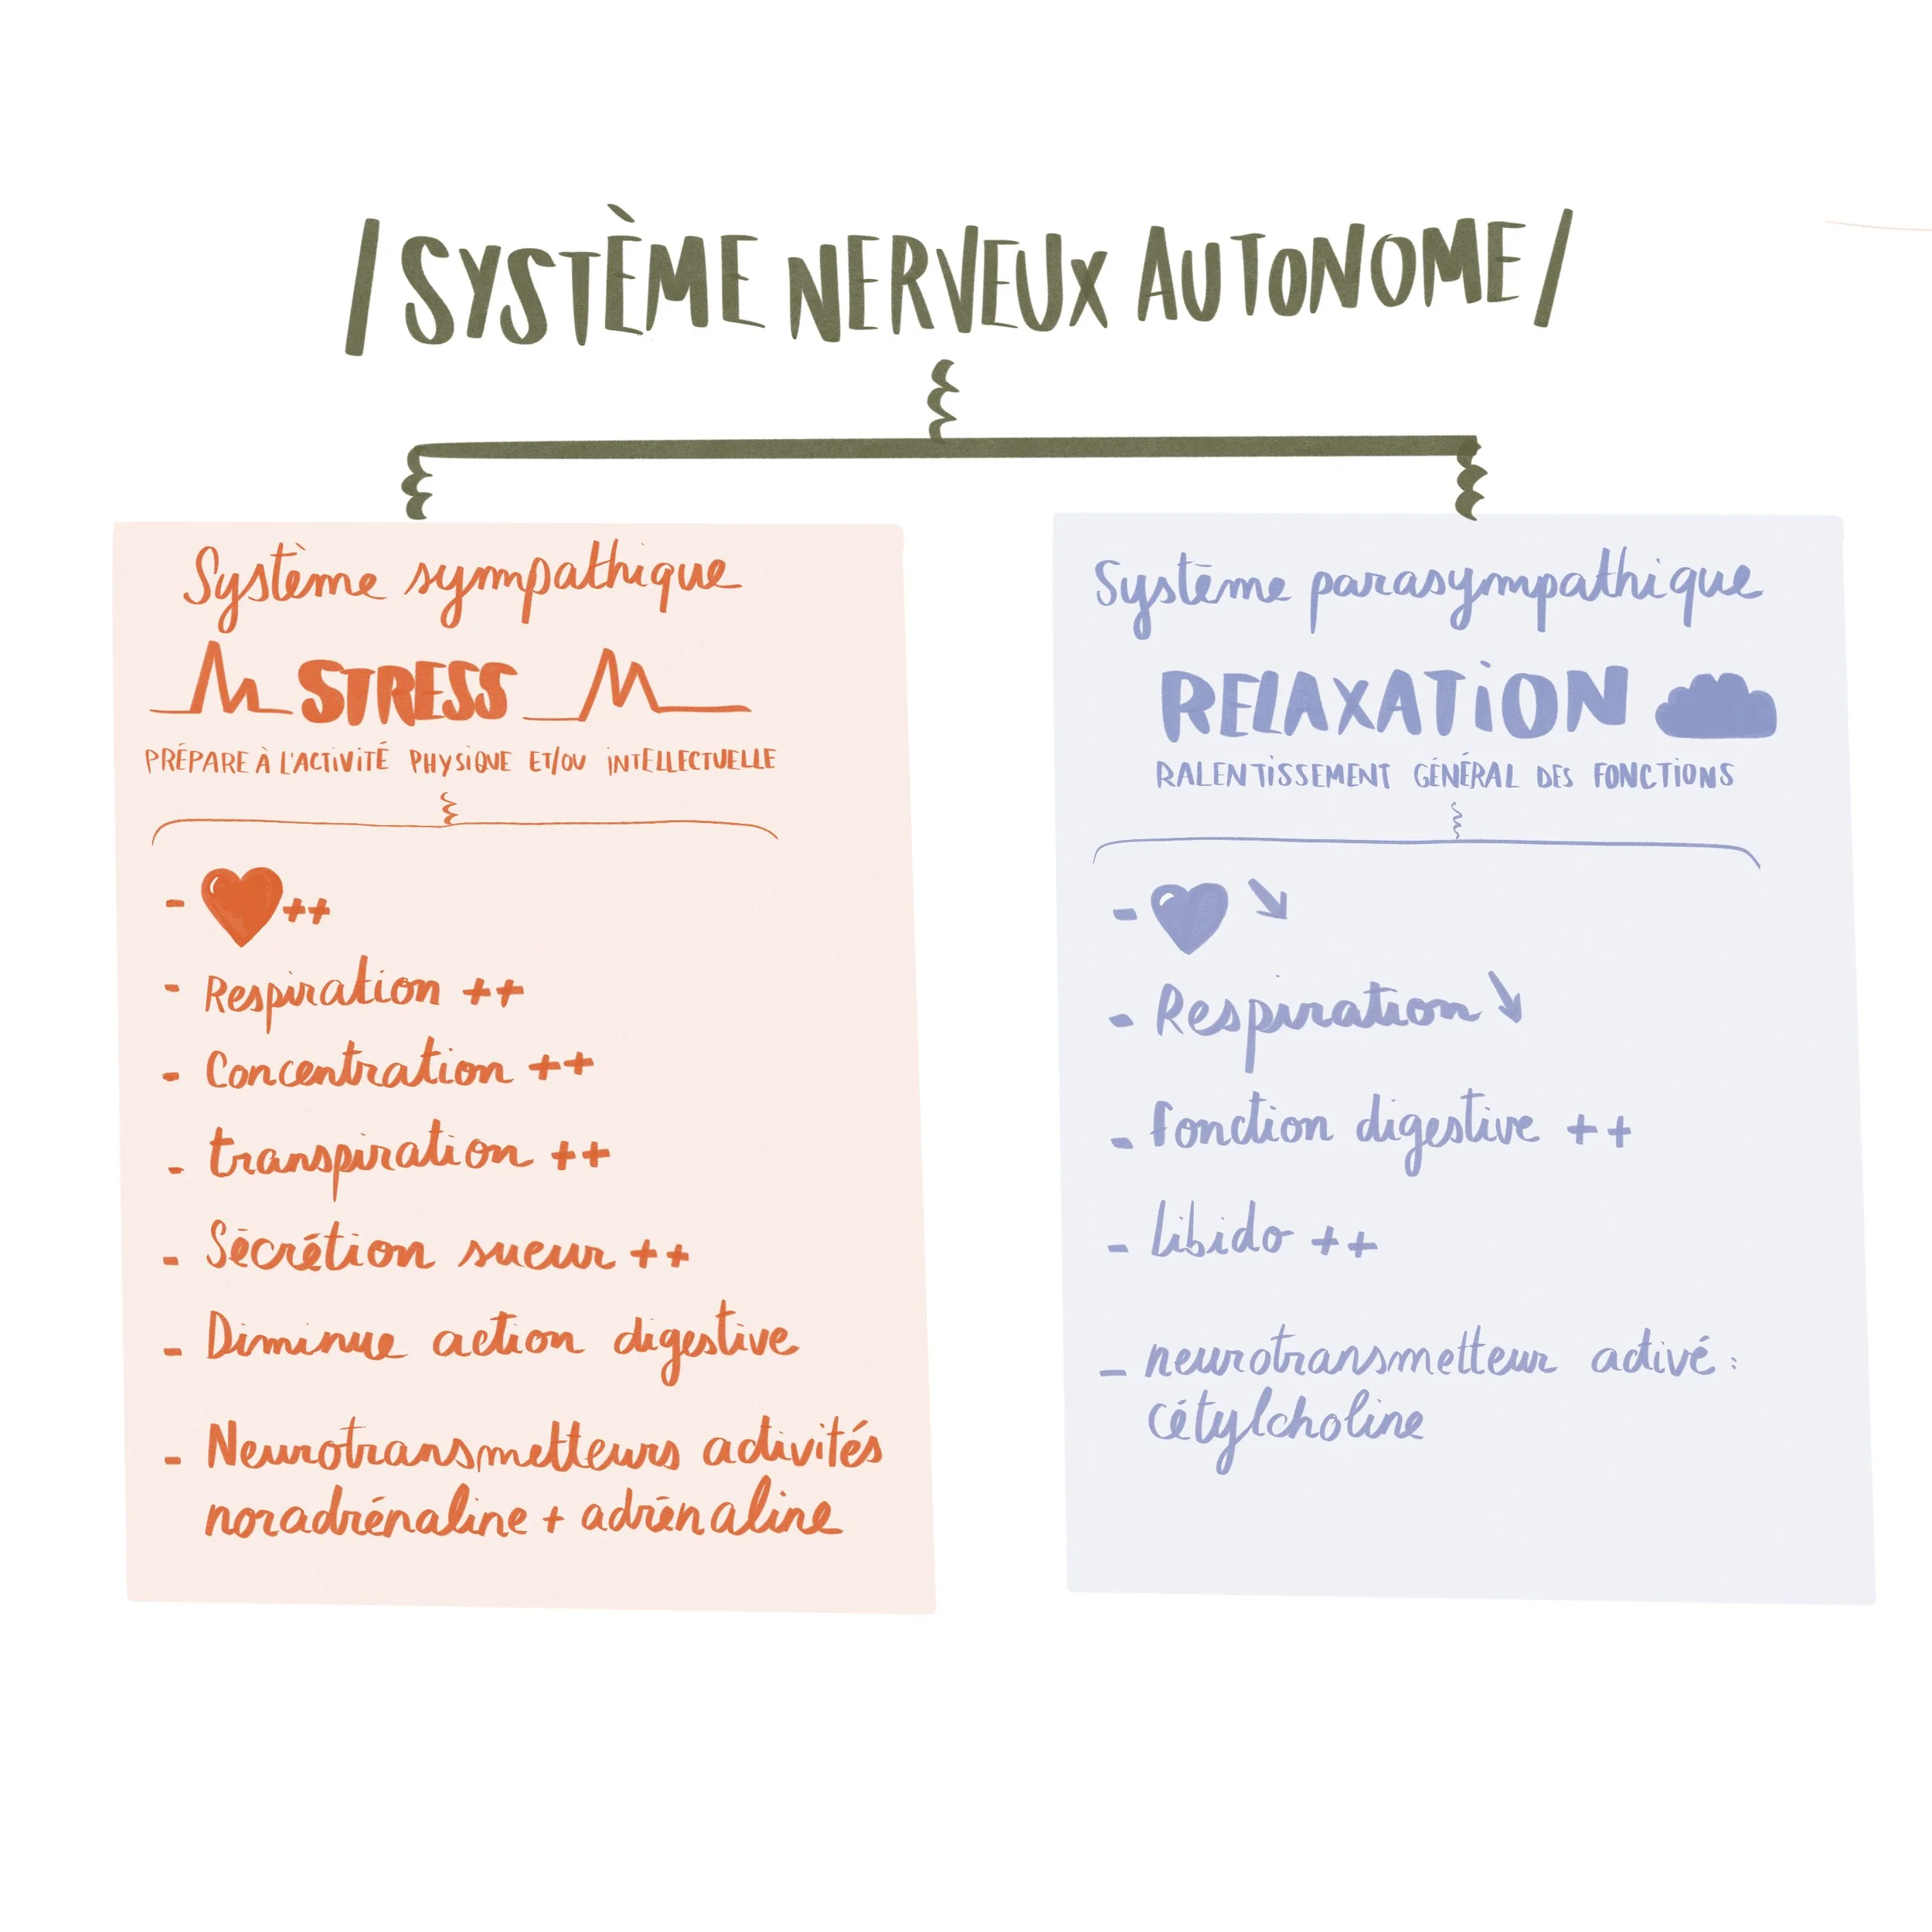 /SYSTÈME NERVEUX AUTONOME/
Système sympathique
STRESS
PRÉPARE À L'ACTIVITÉ PHYSIQUE ET/OU INTELLECTUELLE
- ++
- Respiration ++
- Concentration ++
- transpiration ++
- Sécrétion sueur ++
- Diminue action digestive
- Neurotransmetteurs activités
noradrénaline + adrénaline
Système parasympathique
RELAXATION
RALENTISSEMENT GÉNÉRAL DES FONCTIONS
- ↘
- Respiration ↘
- fonction digestive ++
- libido ++
- neurotransmetteur activé :
cétylcholine